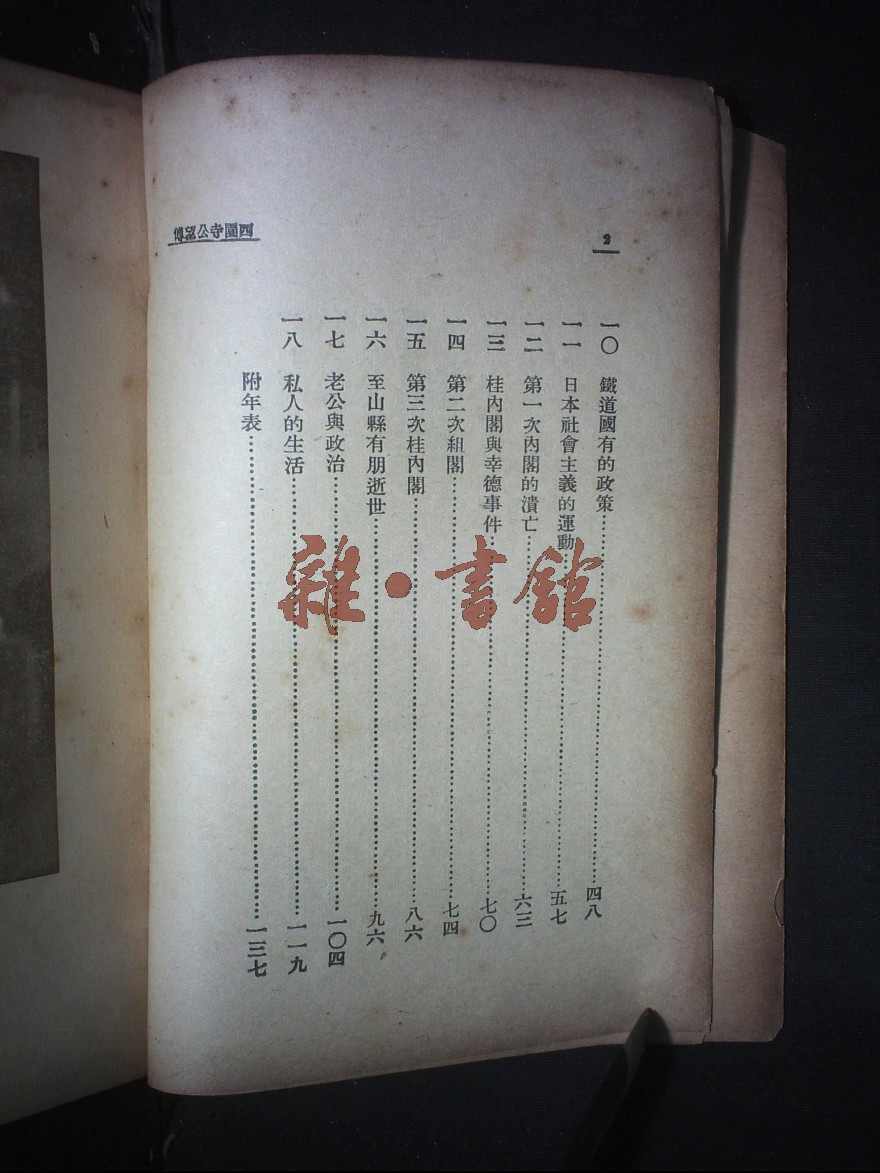 西園寺公望傳
2
一〇 鐵道國有的政策……四八
一一 日本社會主義的運動……五七
一二 第一次內閣的潰亡……六三
一三 桂內閣與幸德事件……七〇
一四 第二次組閣……七四
一五 第三次桂內閣……八六
一六 至山縣有朋逝世……九六
一七 老公與政治……一〇四
一八 私人的生活……一一九
附年表……一三七
雜·書館